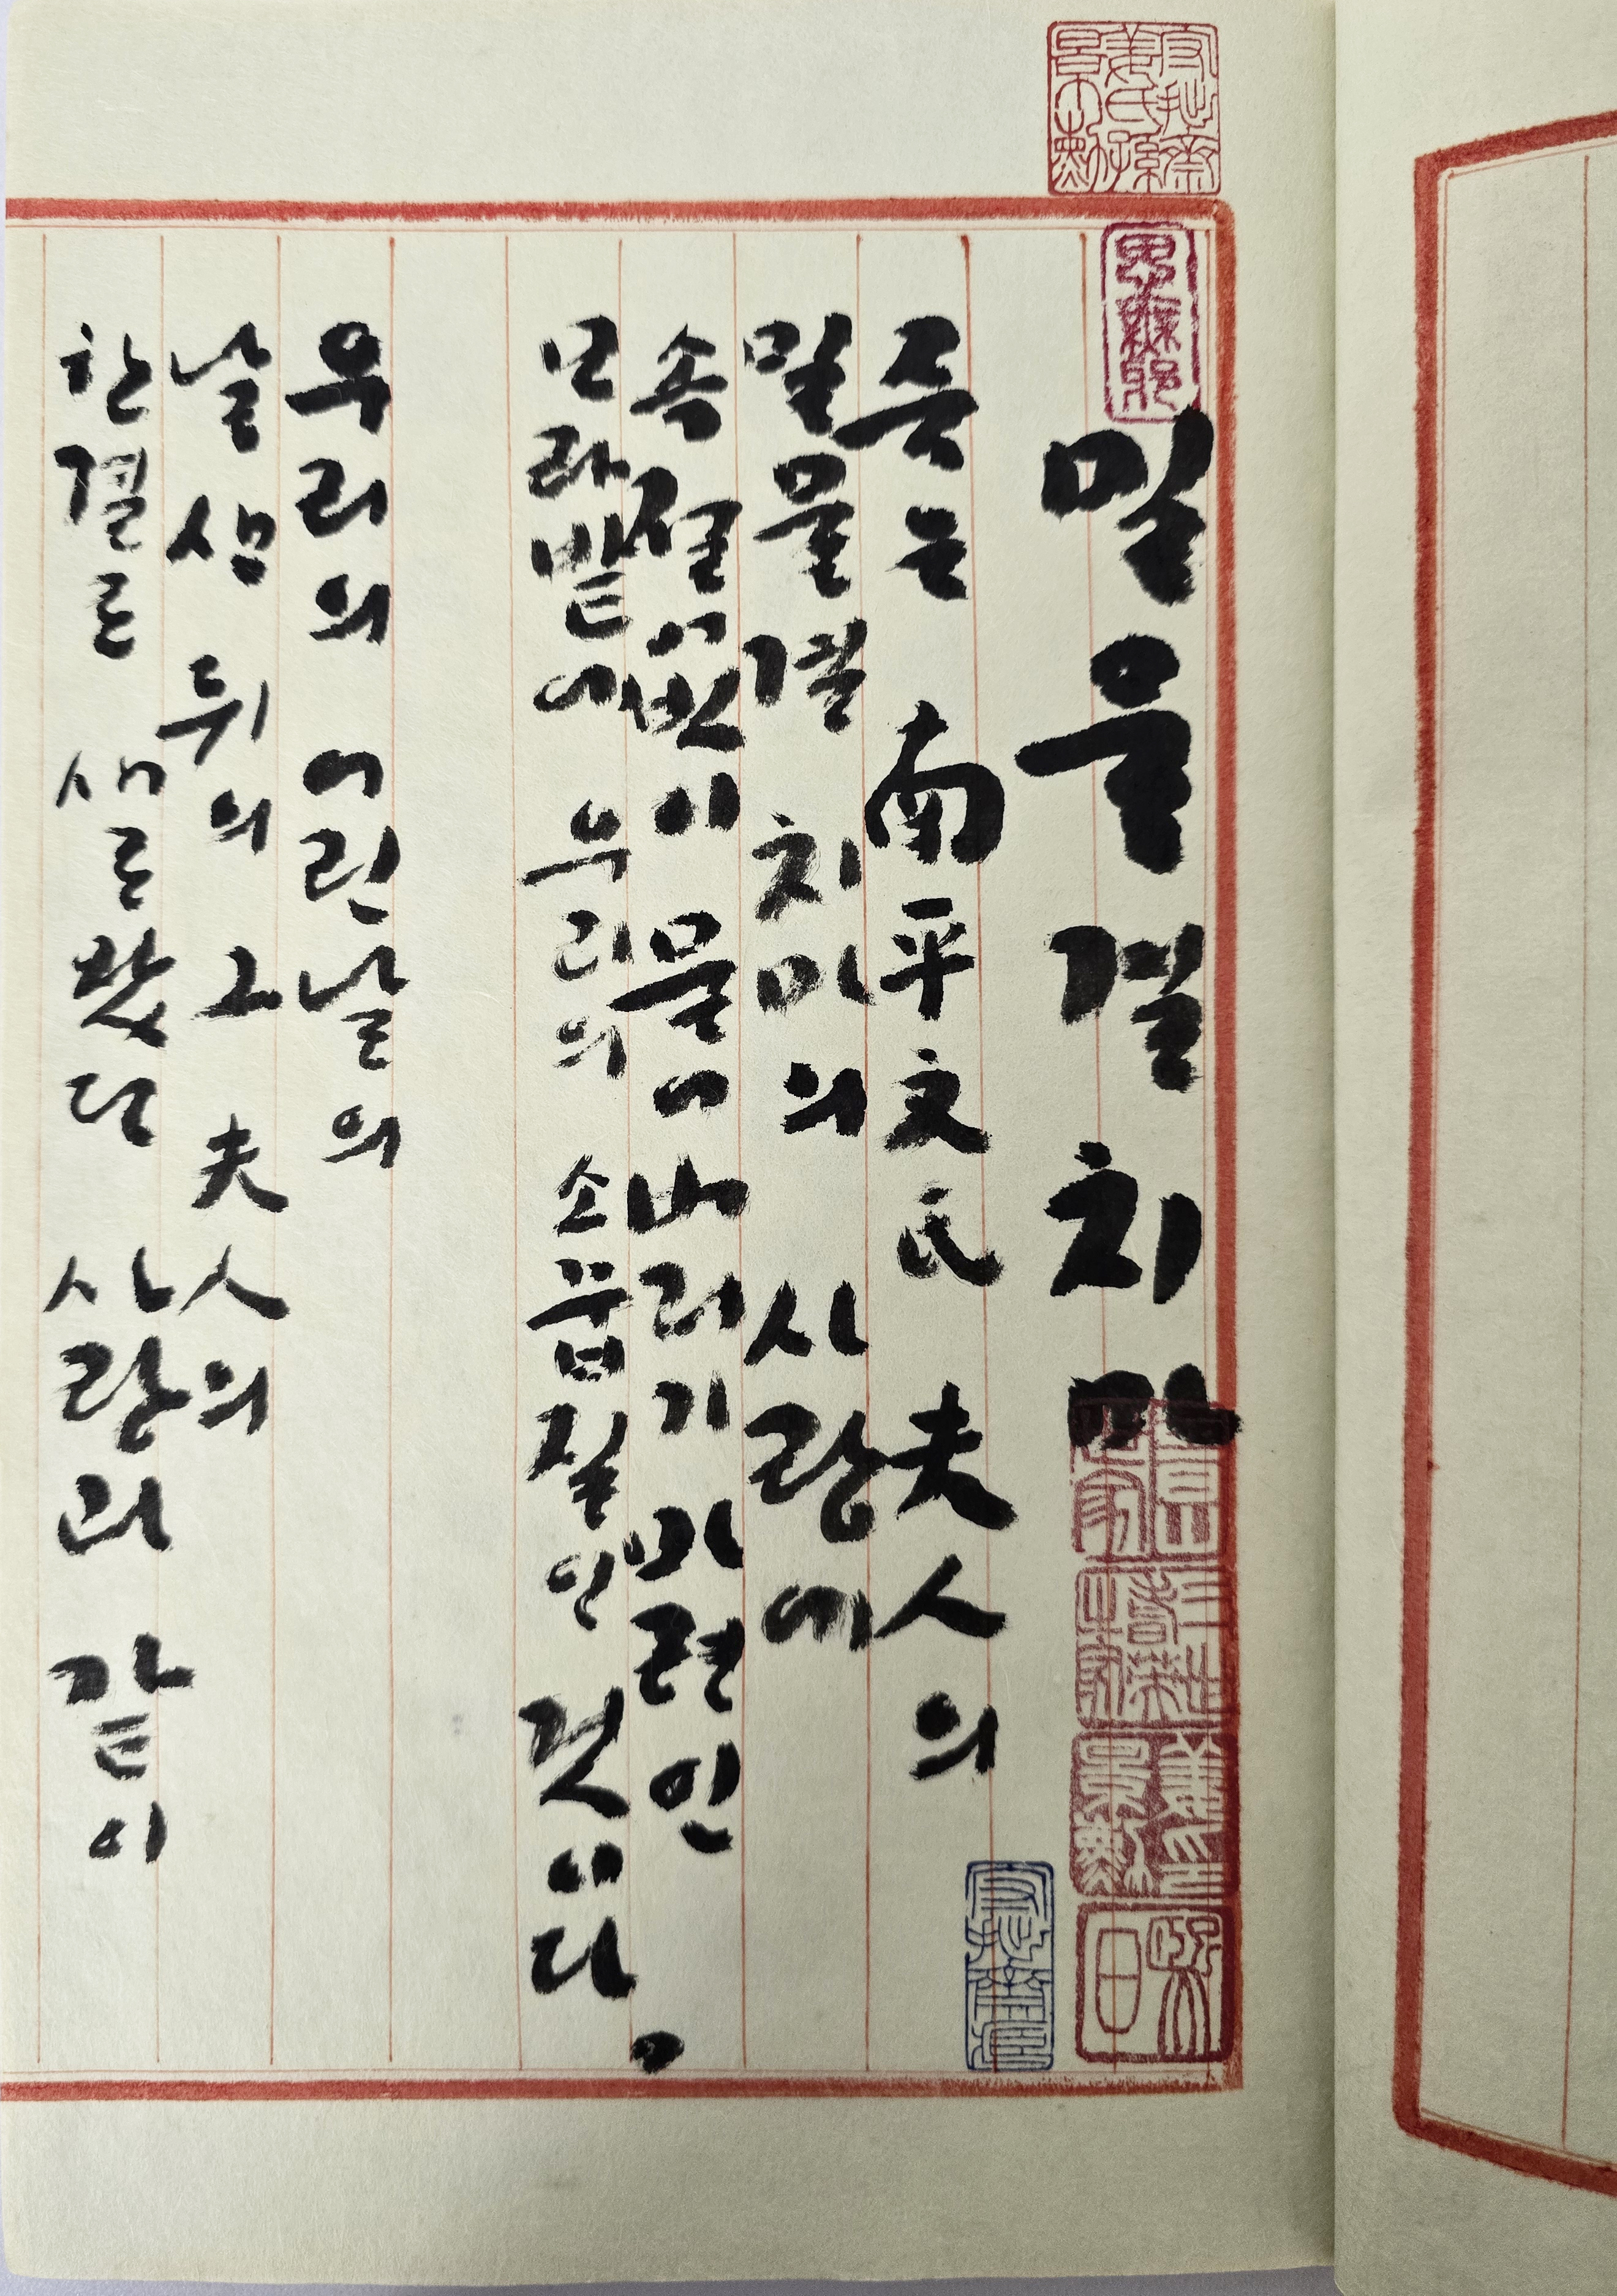 밀물결 치마
죽은 南平文氏 夫人의
밀물결 치마의 사랑에
속절없이 물어 버리기 마련인
모라밭에 우리의 소꿉질인 것이다.
우리의 어린날의
날 샌 뒤의 그 夫人의
한결로 새로왔던 사랑과 같이